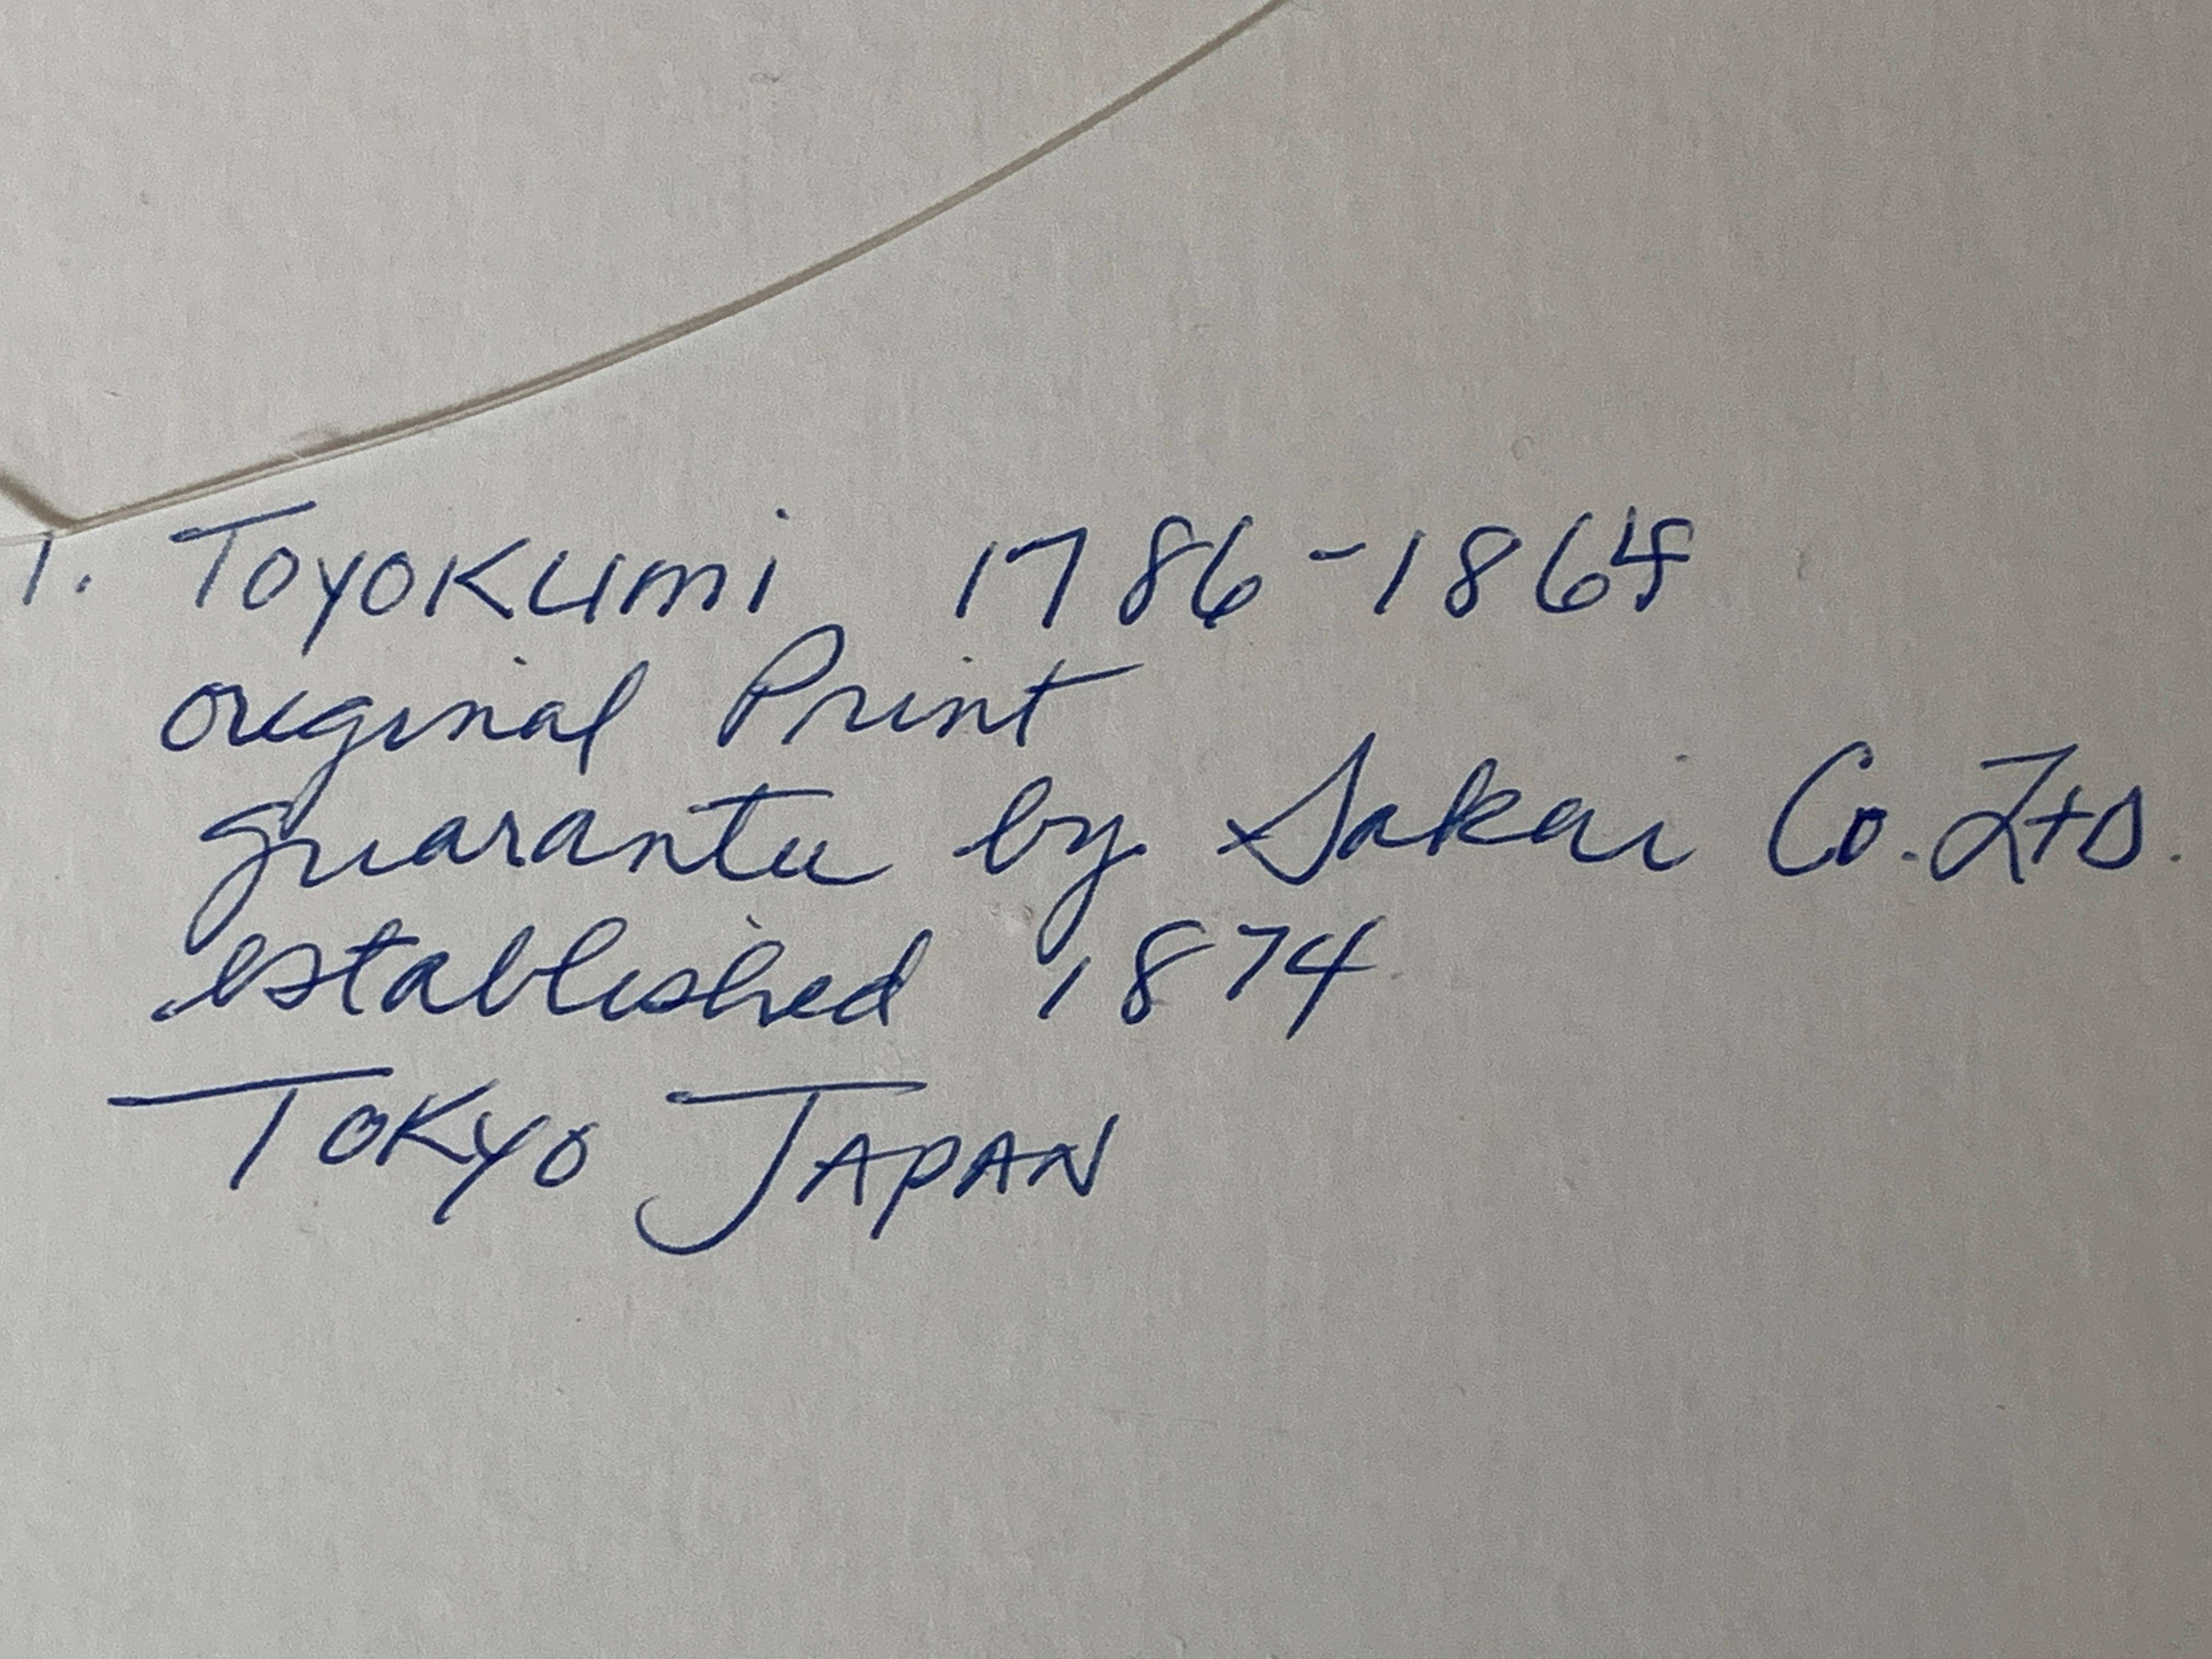 1. Toyokumi 1786-1864
original Print
guarantee by Sakai Co. Ltd.
established 1874
Tokyo Japan